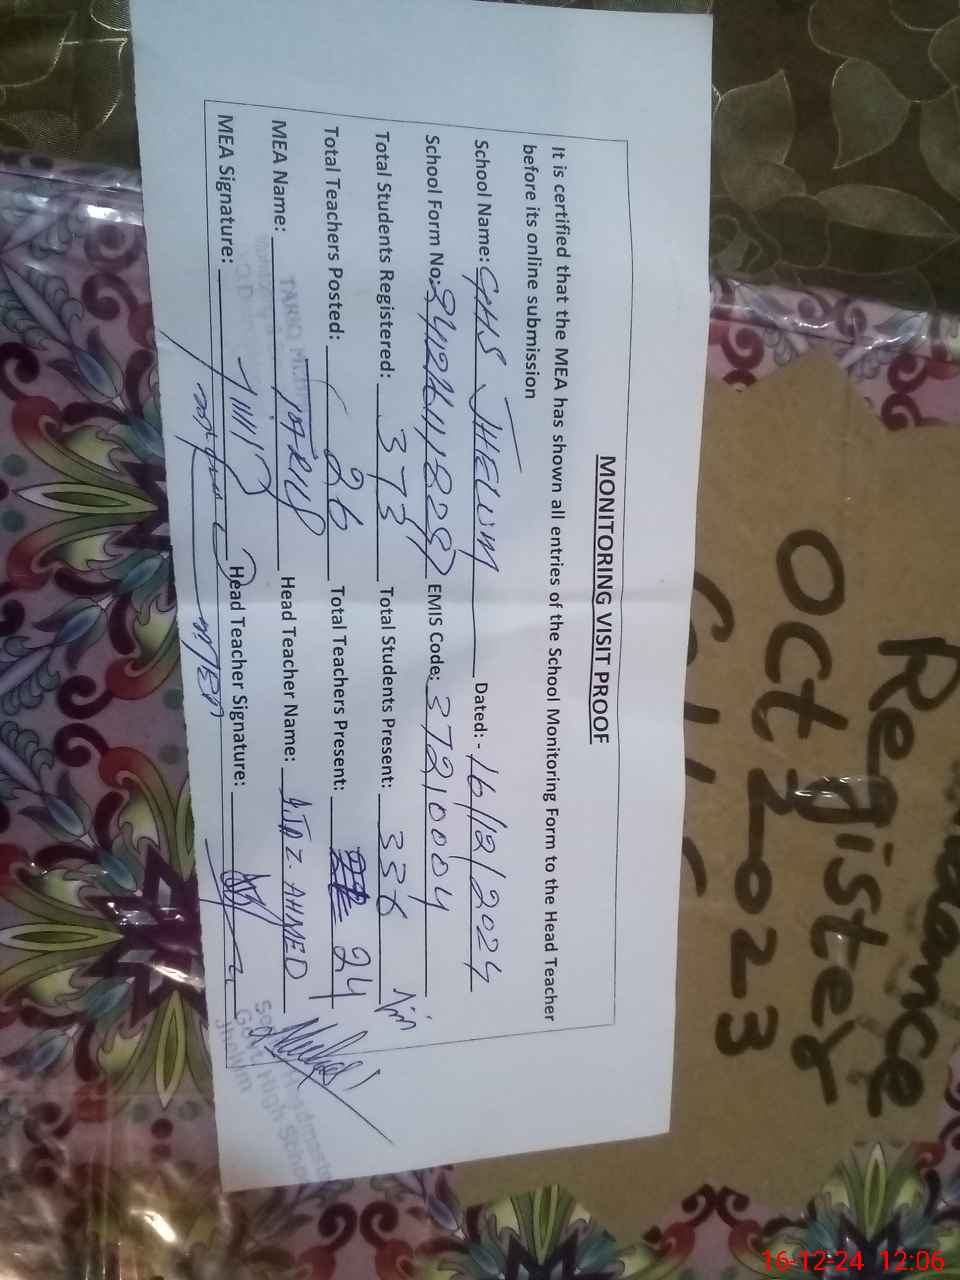 MONITORING VISIT PROOF
It is certified that the MEA has shown all entries of the School Monitoring Form to the Head Teacher
before its online submission
School Name: GHS JHELUM Dated: - 16/12/2024
School Form No: EMIS Code: 37210004
Total Students Registered: 373 Total Students Present: 336
Total Teachers Posted: 26 Total Teachers Present: 24
MEA Name: TARIQ Head Teacher Name: AHMED
MEA Signature: Head Teacher Signature:
Govt. High School
Jhelum
Register
Oct 2023
16-12-24 12:06